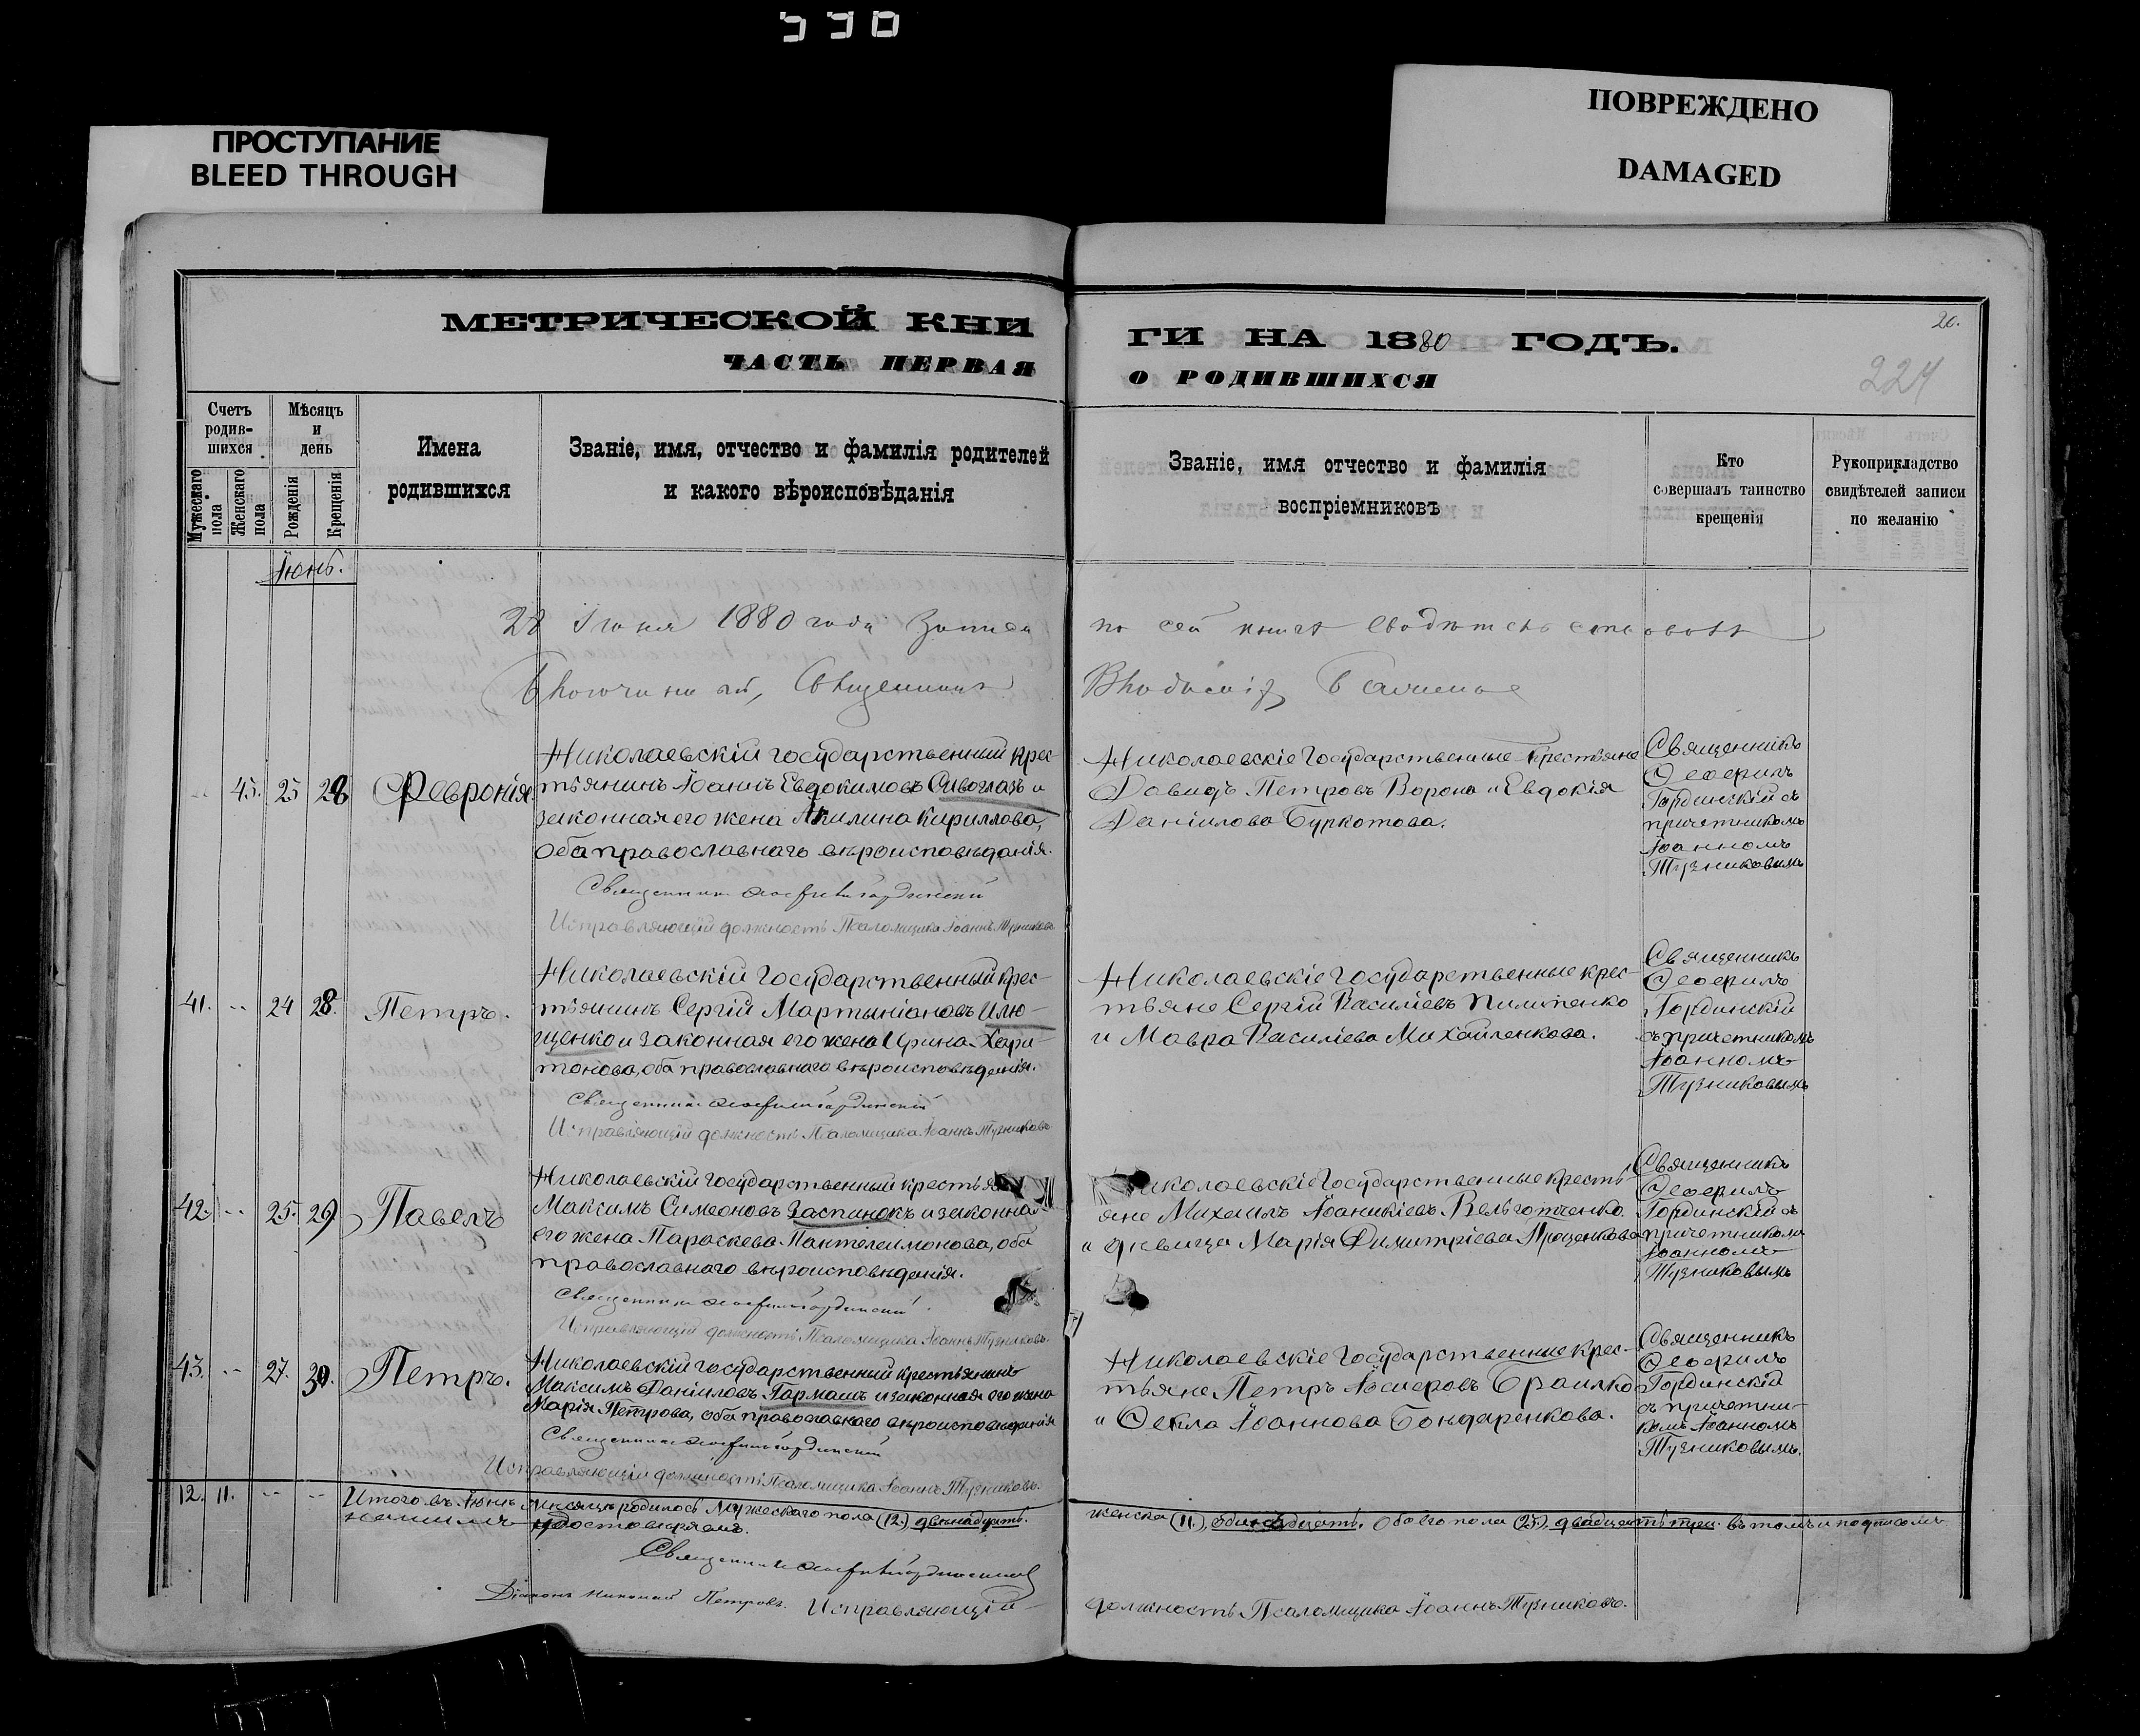 ПРОСТУПАНИЕ
BLEED THROUGH
ПОВРЕЖДЕНО
DAMAGED
МЕТРИЧЕСКОЙ КНИ
ЧАСТЬ ПЕРВАЯ
Счетъ
родив-
шихся
Мѣсяцъ
и
день
Имена
родившихся
Званіе, имя, отчество и фамилія родителей
и какого вѣроисповѣданія
Мужескаго
пола
Женскаго
пола
Рожденія
Крещенія
Іюнь.
28 Іюня 1880 года
Благочинный, Священникъ
45. 25 28 Феѵронія.
Николаевскій государственный крес-
тьянинъ Іоаннъ Евдокимовъ Сивоглазъ и
законная его жена Акилина Кириллова,
оба православнаго вѣроисповѣданія.
Священникъ Гординскій
Исправляющій должность Псаломщика Іоаннъ Тузниковъ
41. -- 24 28. Петръ.
Николаевскій государственный крес-
тьянинъ Сергій Мартыніановъ Илю-
щенко и законная его жена Ирина Хари-
тонова, оба православнаго вѣроисповѣданія.
Священникъ Гординскій
Исправляющій должность Псаломщика Іоаннъ Тузниковъ
42. -- 25. 29 Павелъ
Николаевскій государственный крестьян
Максимъ Симеоновъ Заспинокъ и законная
его жена Параскева Пантелеимонова, оба
православнаго вѣроисповѣданія.
Священникъ Гординскій
Исправляющій должность Псаломщика Іоаннъ Тузниковъ.
43. -- 27. 30. Петръ.
Николаевскій государственный крестьянинъ
Максимъ Даніиловъ Гармашъ и законная его жена
Марія Петрова, оба православнаго вѣроисповѣданія
Священникъ Гординскій
Исправляющій должность Псаломщика Іоаннъ Тузниковъ.
12. 11. -- -- Итого въ Іюнѣ мѣсяцѣ родилось Мужескаго пола (12.) двѣнадцать.
удостовѣряемъ.
Священникъ Гординскій
Діаконъ Николай Петровъ. Исправляющій
ГИ НА 1880 ГОДЪ.
О РОДИВШИХСЯ
20.
224
Званіе, имя отчество и фамилія
воспріемниковъ
Кто
совершалъ таинство
крещенія
Рукоприкладство
свидѣтелей записи
по желанію
по сей книгѣ
Николаевскіе Государственные Крестьяне
Давидъ Петровъ Ворона и Евдокія
Даніилова Буркотова.
Священникъ
Ѳеофилъ
Гординскій съ
причетникомъ
Іоанномъ
Тузниковымъ
Николаевскіе Государственные крес-
тьяне Сергій Василіевъ Пилипенко
и Мавра Василіева Михайленкова.
Священникъ
Ѳеофилъ
Гординскій
съ причетникомъ
Іоанномъ
Тузниковымъ
иколаевскіе Государственные кресть-
яне Михаилъ Іоаникіевъ
и дѣвица Марія Димитріева Проценкова
Священникъ
Ѳеофилъ
Гординскій съ
причетникомъ
Іоанномъ
Тузниковымъ
Николаевскіе Государственные крес-
тьяне Петръ Браилко
и Ѳекла Іоаннова Бондаренкова.
Священникъ
Ѳеофилъ
Гординскій
съ причетни-
комъ Іоанномъ
Тузниковымъ.
женска (11.) одинадцать. Обоего пола (23.) двадцать три. въ томъ и подписомъ
должность Псаломщика Іоаннъ Тузниковъ.